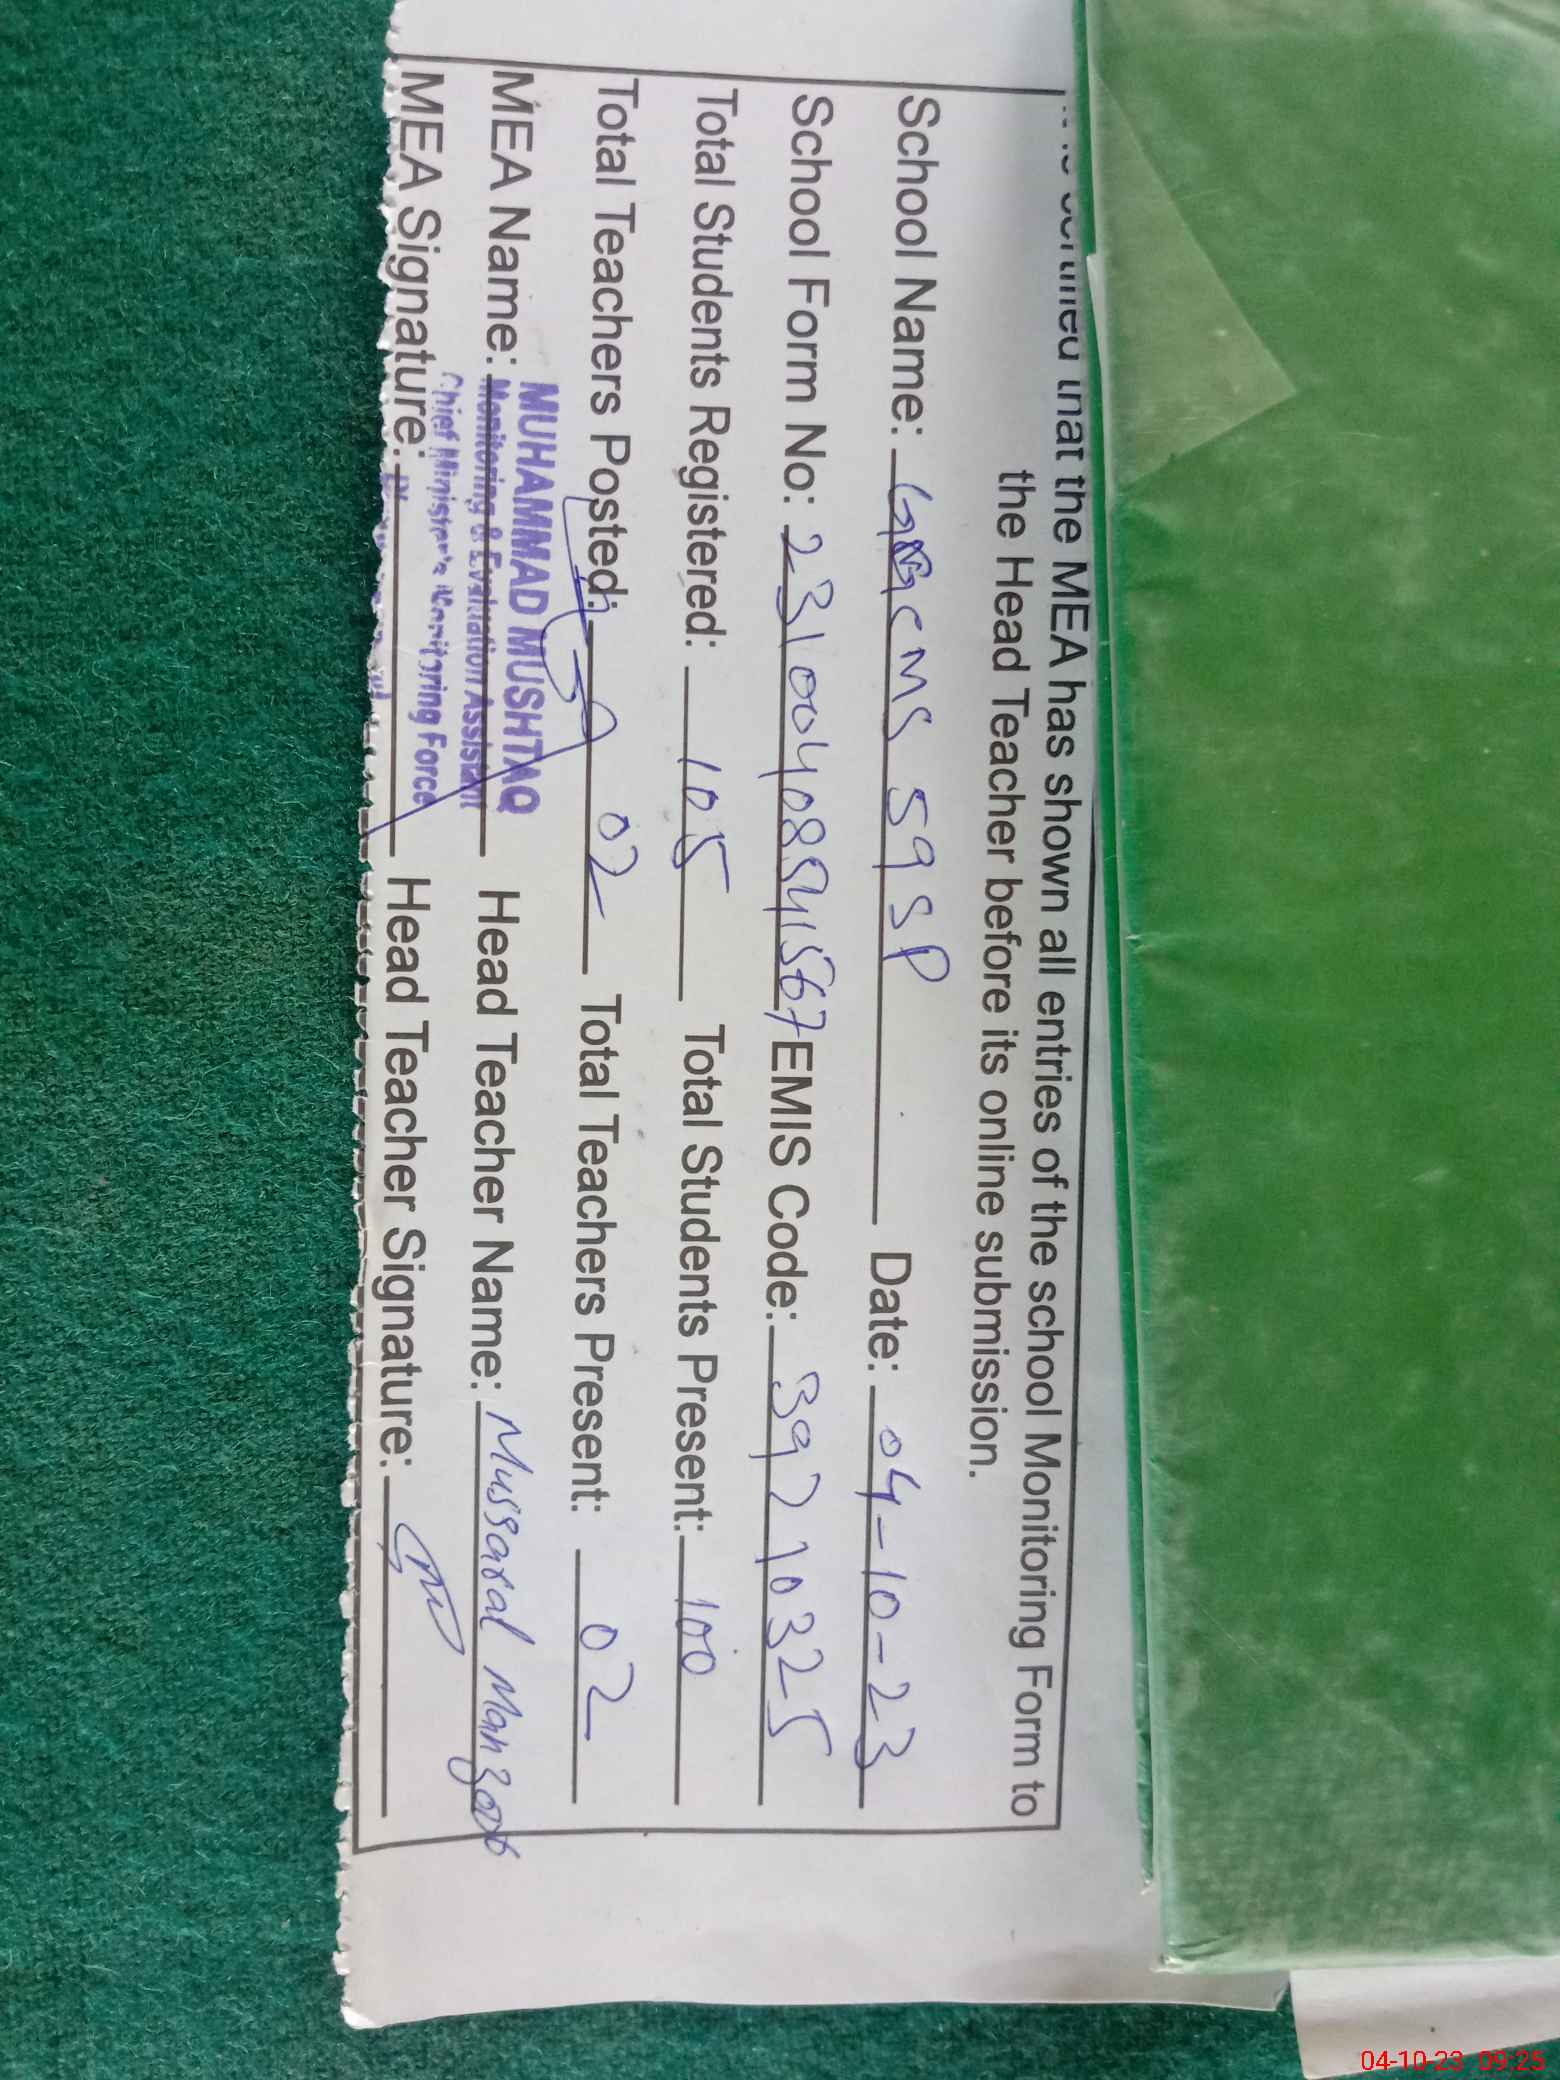 that the MEA has shown all entries of the school Monitoring Form to
the Head Teacher before its online submission.
School Name: CMS 59 SP Date: 04-10-23
School Form No: EMIS Code: 39210325
Total Students Registered: 105 Total Students Present: 100
Total Teachers Posted: 02 Total Teachers Present: 02
MUHAMMAD MUSHTAQ
MEA Name: Monitoring & Evaluation Assistant Head Teacher Name: Mussarat Manzoor
Chief Minister's Monitoring Force
MEA Signature: Head Teacher Signature:
04-10-23 09:25